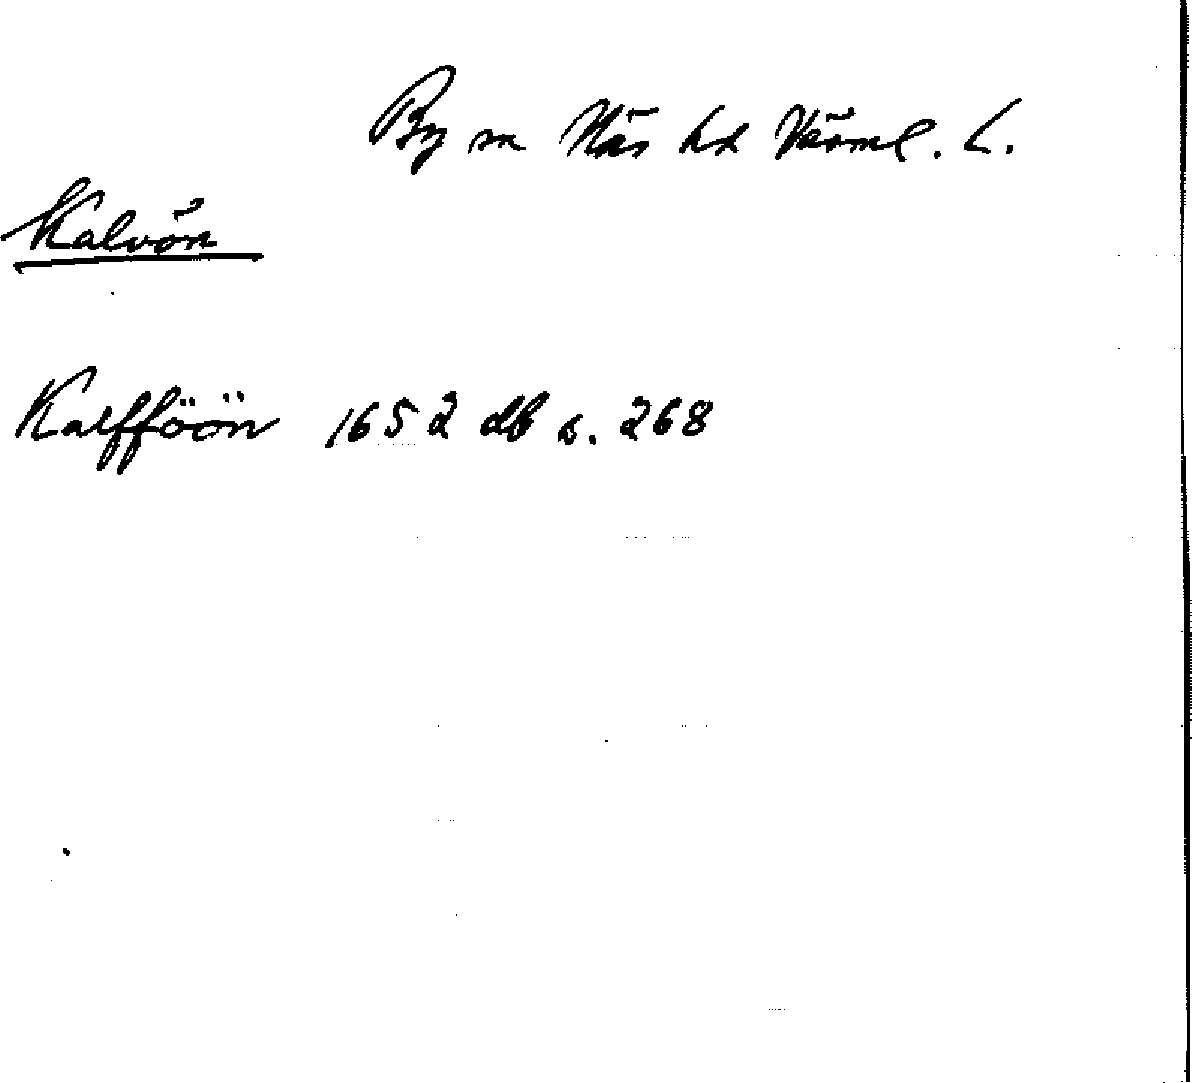 By sn Näs hd Värml. l.
Kalvön
Kalfföön 1652 db s. 268